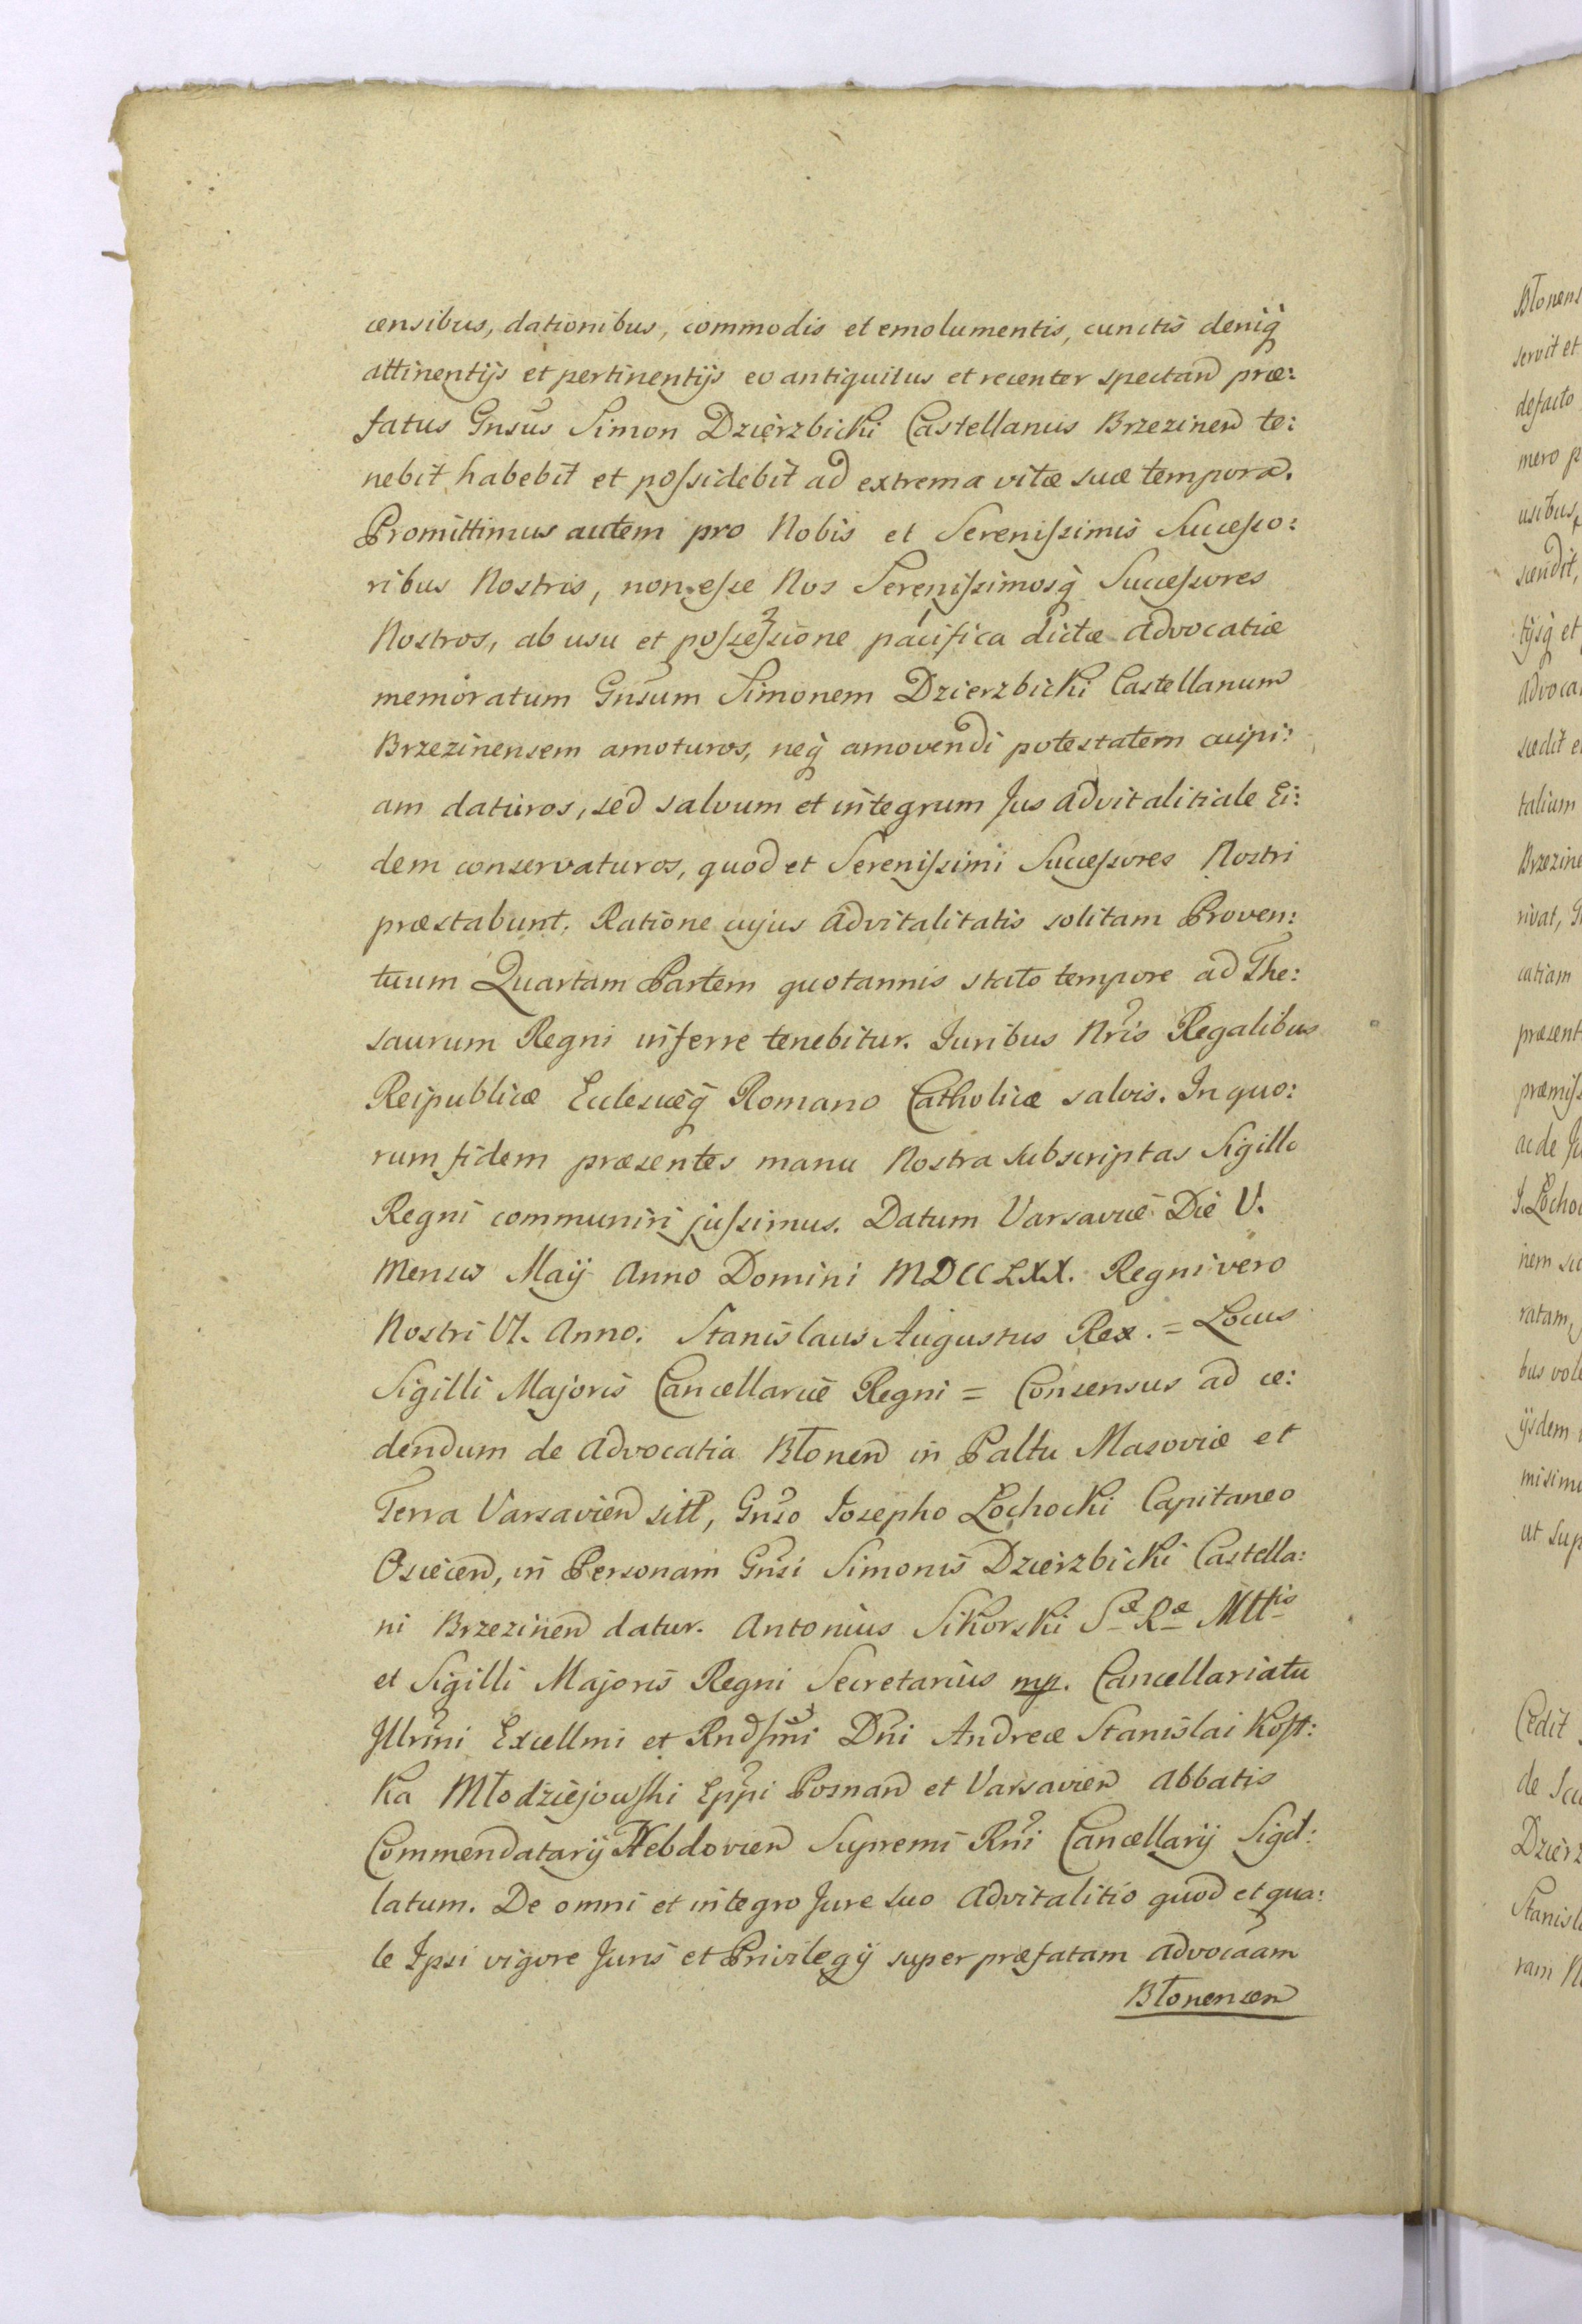 censibus, dationibus, commodis et emolumentis, cunctis deniq̀
attinentijs et pertinentijs eo antiquitus et recenter spectan præ:
fatus Gnsus Simon Dzierzbicki Castellanus Brzezinen te:
nebit habebit et possidebit ad extrema vitæ suæ tempora.
Promittimus autem pro Nobis et Serenissimis Successo:
ribus Nostris, non esse Nos Serenissimosq̀ Successores
Nostros, ab usu et possessione pacifica dictæ Advocatiæ
memoratum Gnsum Simonem Dzierzbicki Castellanum
Brzezinensem amoturos, neq̀ amovendi potestatem cuipi:
am daturos, sed salvum et integrum Jus Advitalitiale Ei:
dem conservaturos, quod et Serenissimi Successores Nostri
præstabunt. Ratione cujus Advitalitatis solitam Proven:
tuum Quartam Partem quotannis stato tempore ad The:
saurum Regni inferre tenebitur. Juribus Nris Regalibus
Reipublicæ Eclesiæq̀ Romano Catholicæ salvis. In quo:
rum fidem præsentes manu Nostra subscriptas Sigillo
Regni communiri jussimus. Datum Varsaviæ Die V.
Mensis Maij Anno Domini MDCCLXX. Regni vero
Nostri VI. Anno. Stanislaus Augustus Rex. = Locus
Sigilli Majoris Cancellariæ Regni = Consensus ad ce:
dendum de Advocatia Błonen in Paltu Masoviæ et
Terra Varsavien sitt, Gnso Josepho Łochocki Capitaneo
Osiecen, in Personam Gnsi Simonis Dzierzbicki Castella:
ni Brzezinen datur. Antonius Sikorski Sæ Ræ Mttis
et Sigilli Majoris Regni Secretarius mp. Cancellariatu
Jllrmi Excellmi et Rndssmi Dni Andreæ Stanislai Kost:
ka Młodziejowski Eppi Posnan et Varsavien Abbatis
Commendatarij Hebdovien Supremi Rni Cancellarij Sigil:
latum. De omni et integro Jure suo Advitalitio quod et qua:
le Ipsi vigore Juris et Privilegij super præfatam Advocaam
Błonensen